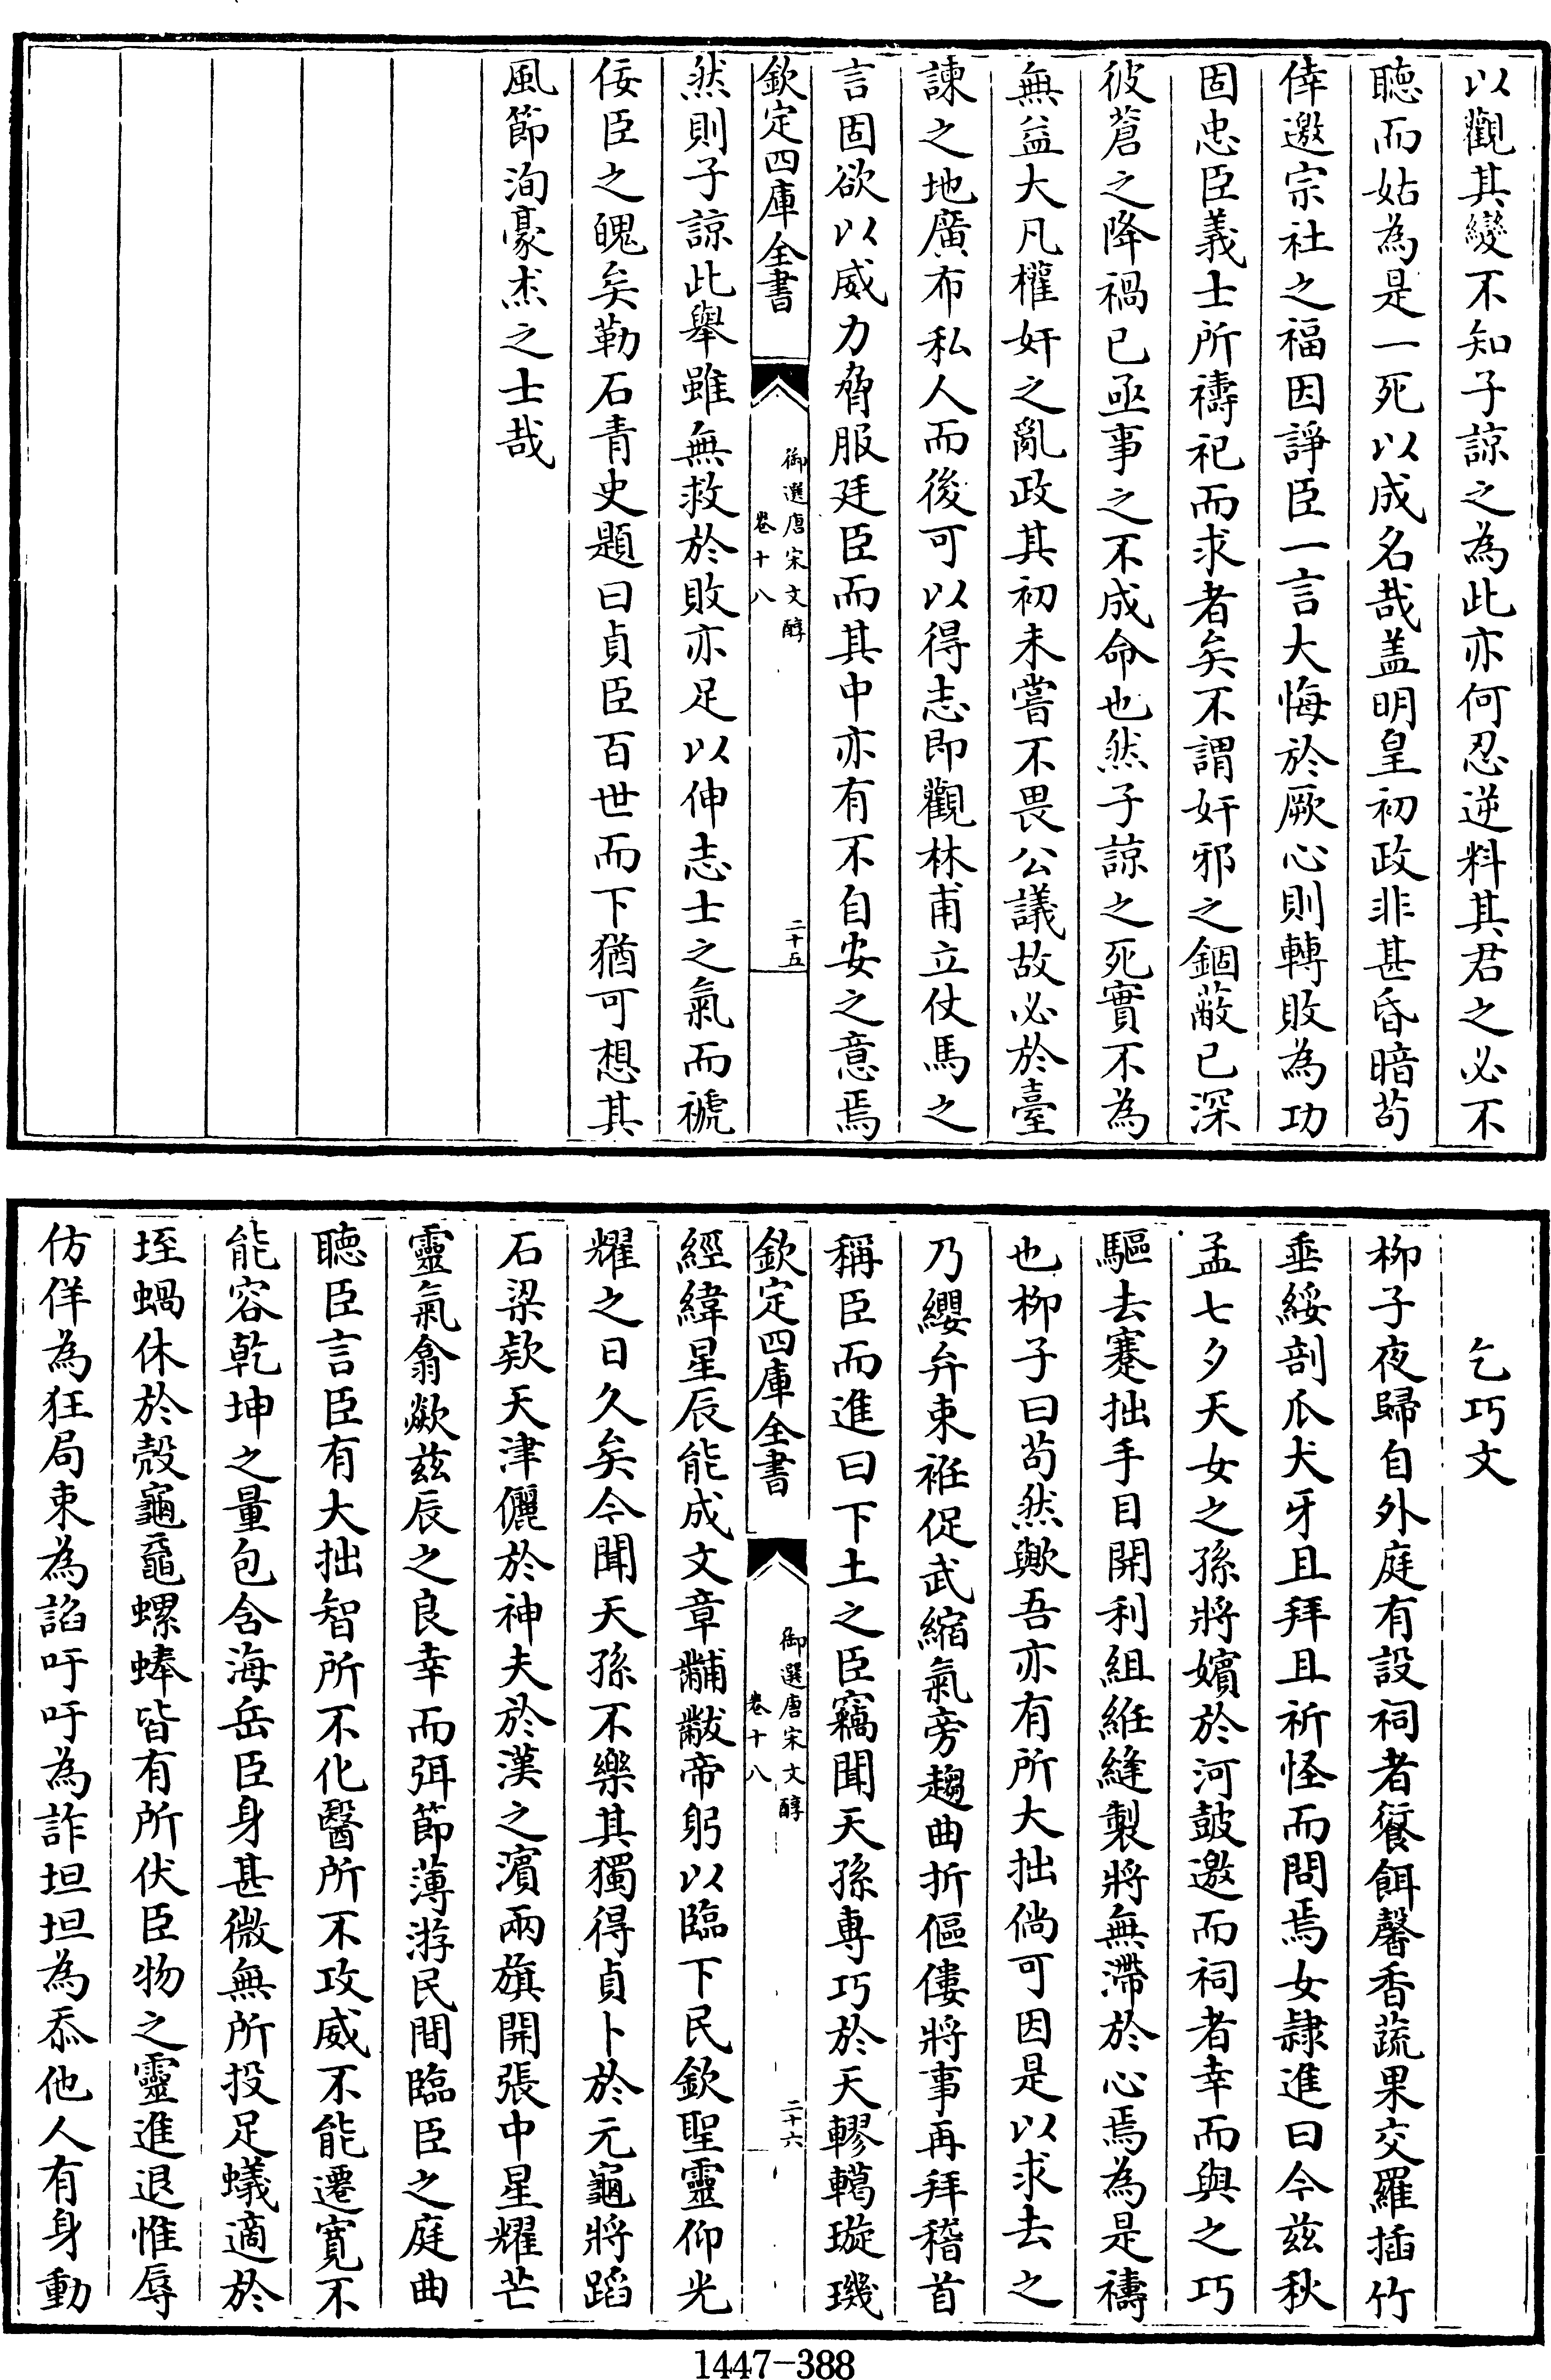 以觀其變不知子諒之為此亦何忍逆料其君之必不
聽而姑為是一死以成名哉盖明皇初政非甚昏暗苟
倖邀宗社之福因諍臣一言大悔於厥心則轉敗為功
固忠臣義士所禱祀而求者矣不謂奸邪之錮蔽已深
彼蒼之降禍已亟事之不成命也然子諒之死實不為
無益大凡權奸之亂政其初未嘗不畏公議故必於臺
諫之地廣布私人而後可以得志即觀林甫立仗馬之
言固欲以威力脅服廷臣而其中亦有不自安之意焉
欽定四庫全書
御選唐宋文醇
卷十八
二十五
然則子諒此舉雖無救於敗亦足以伸志士之氣而禠
佞臣之魄矣勒石青史題曰貞臣百世而下猶可想其
風節洵豪杰之士哉
乞巧文
栁子夜歸自外庭有設祠者餐餌馨香蔬果交羅插竹
垂綏剖爪犬牙且拜且祈怪而問焉女隷進曰今兹秋
孟七夕天女之孫將嬪於河鼓邀而祠者幸而與之巧
驅去蹇拙手目開利組絍縫製將無滯於心焉為是禱
也栁子曰苟然歟吾亦有所大拙倘可因是以求去之
乃纓弁束袵促武縮氣旁趨曲折傴僂將事再拜稽首
稱臣而進曰下土之臣竊聞天孫専巧於天轇轕璇璣
欽定四庫全書
御選唐宋文醇
卷十八
二十六
經緯星辰能成文章黼黻帝躬以臨下民欽聖靈仰光
耀之日久矣今聞天孫不樂其獨得貞卜於元龜將蹈
石梁欵天津儷於神夫於漢之濱兩旗開張中星耀芒
靈氣翕歘兹辰之良幸而弭節薄游民間臨臣之庭曲
聽臣言臣有大拙智所不化醫所不攻威不能遷寛不
能容乾坤之量包含海岳臣身甚微無所投足蟻適於
垤蝸休於殻龜黿螺蜯皆有所伏臣物之靈進退惟辱
仿佯為狂局束為諂吁吁為詐坦坦為忝他人有身動
1447-388